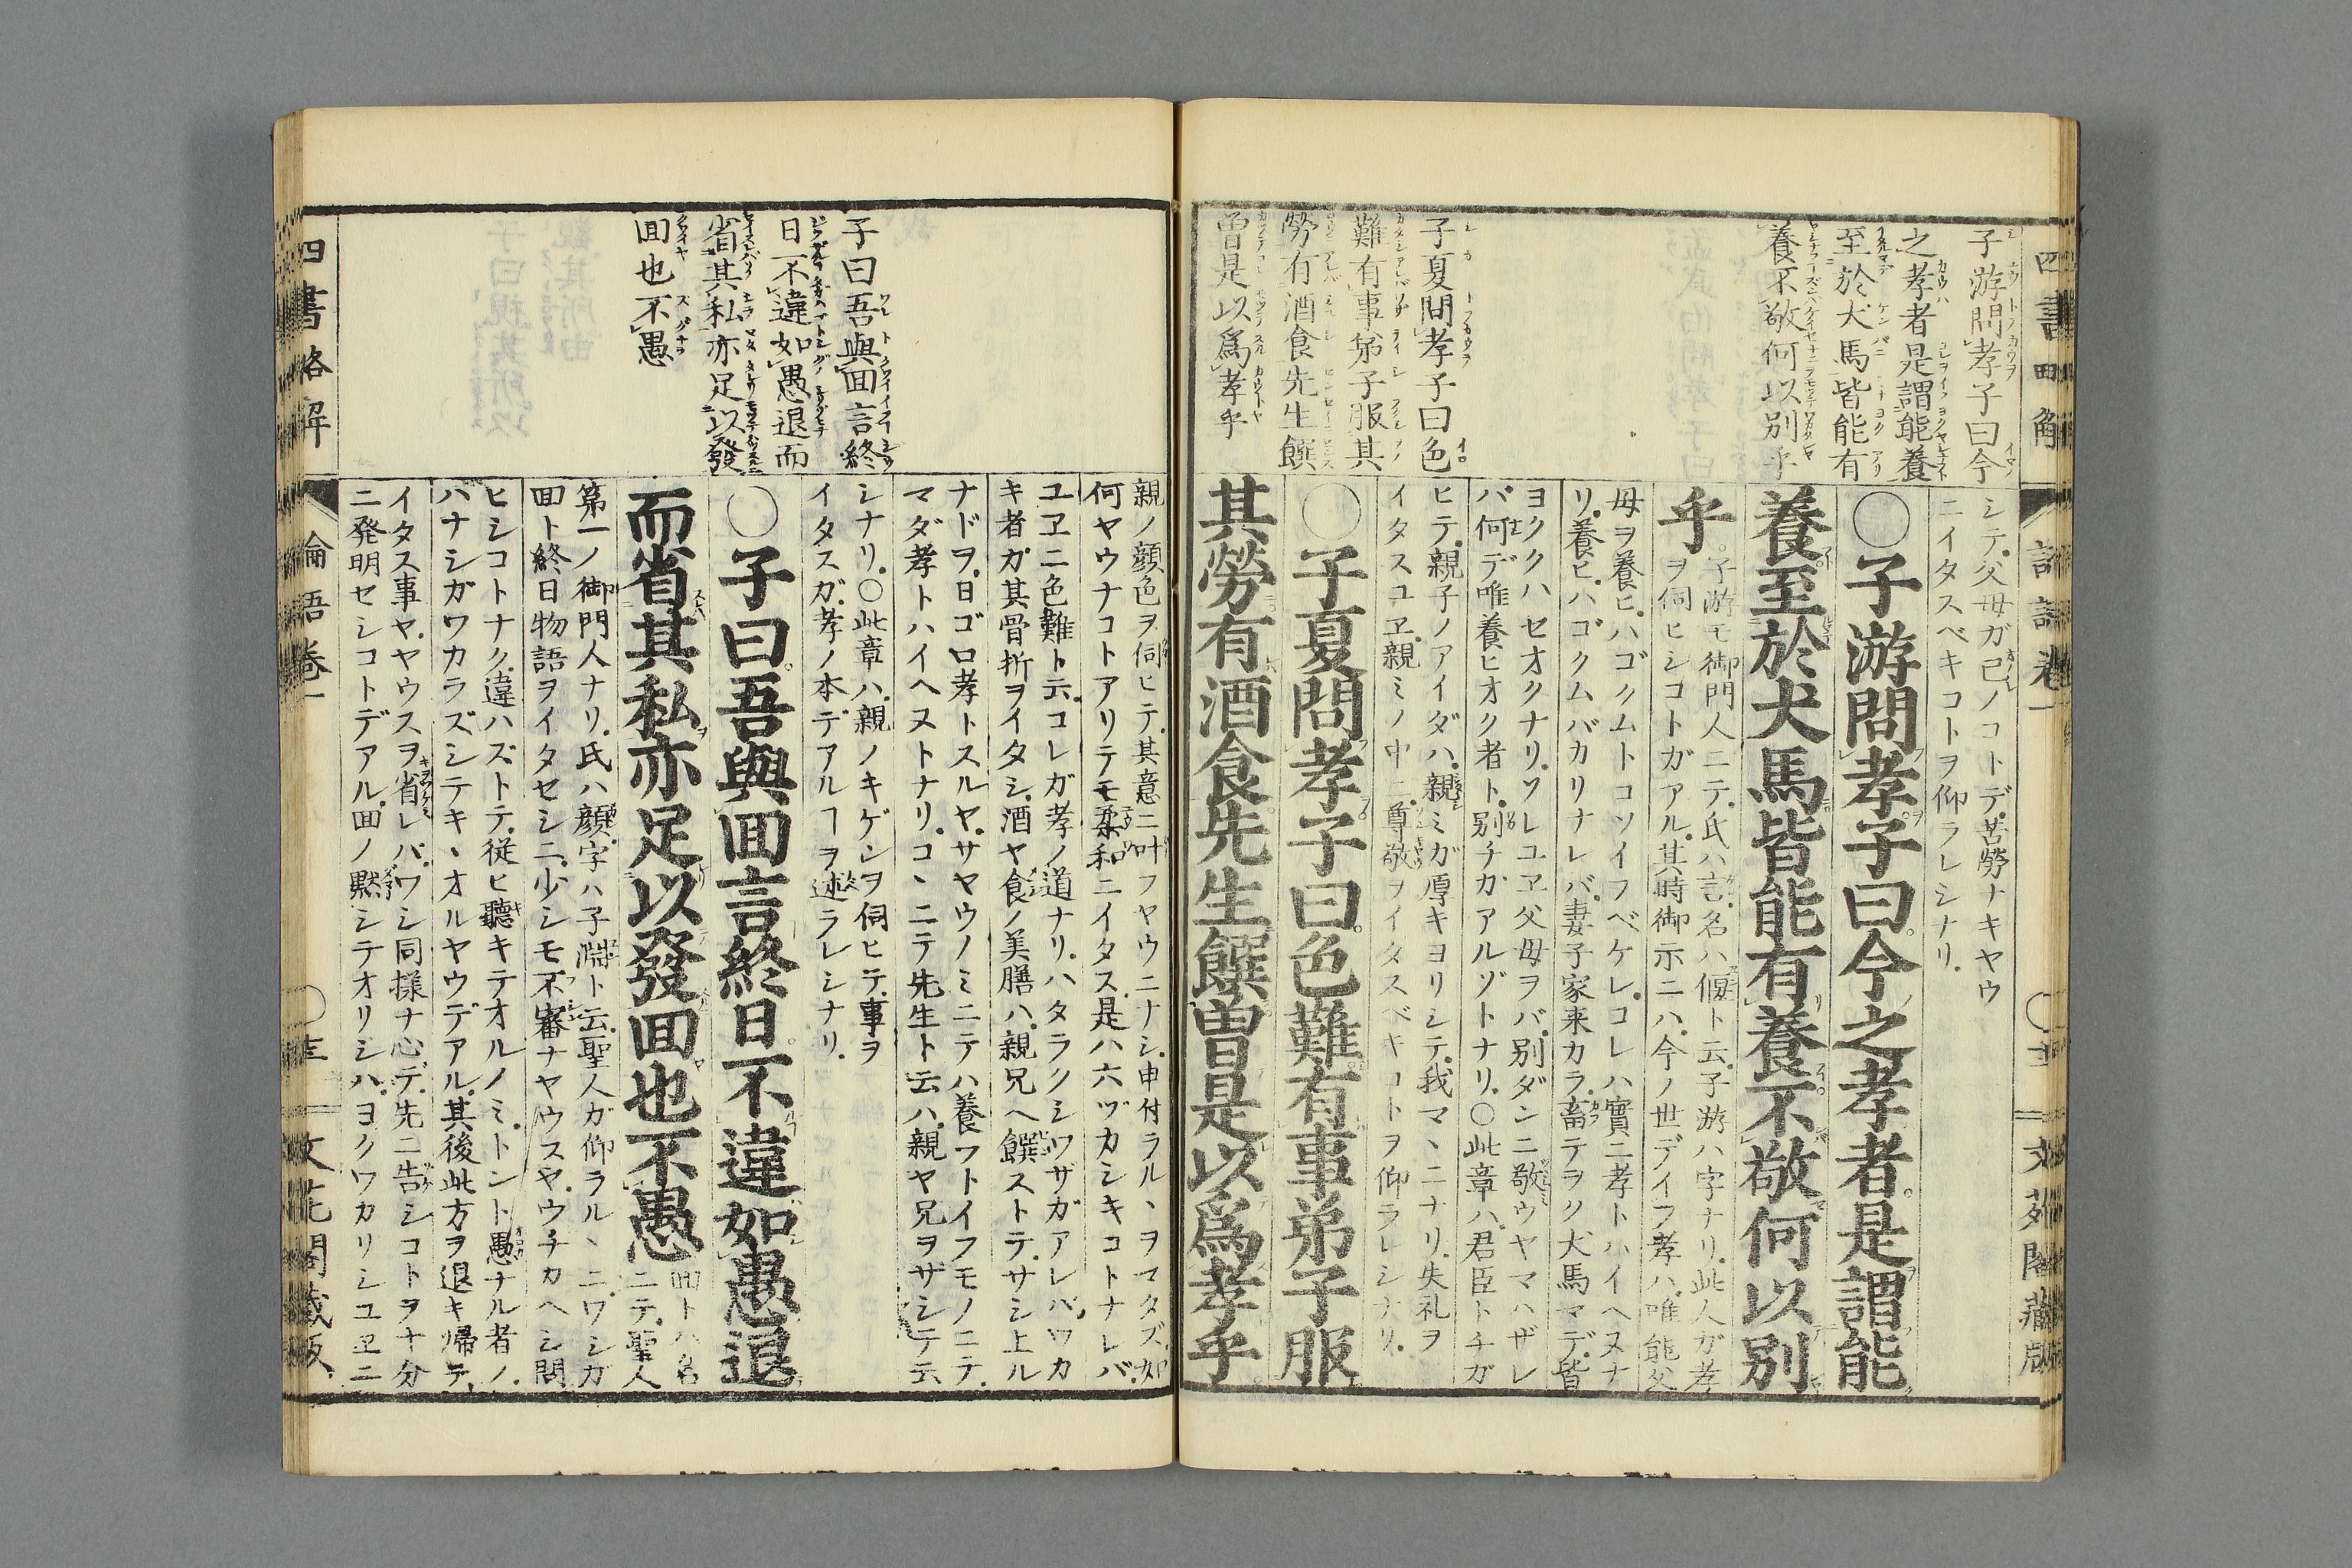 子游問孝子曰今
之孝者是謂能養
至於犬馬皆能有
養不敬何以別乎
子夏問孝子曰色
難有事弟子服其
勞有酒食先生饌
曽是以爲孝乎
シテ父母ガ己ノコトデ苦勞ナキヤウ
ニイタスベキコトヲ仰ラレシナリ
〇子游問孝子曰今之孝者是謂能
養至於犬馬皆能有養不敬何以別
乎
子游モ御門人ニテ氏ハ言名ハ偃ト云子游ハ字ナリ此人ガ孝
ヲ伺ヒシコトガアル其時御示ニハ今ノ世デイフ孝ハ唯能父
母ヲ養ヒハゴクムトコソイフベケレコレハ實ニ孝トハイヘヌナ
リ養ヒハゴクムバカリナレバ妻子家来カラ畜テヲク犬馬マデ皆
ヨクハセオクナリソレユヱ父母ヲバ別ダンニ敬ウヤマハザレ
バ何デ唯養ヒオク者ト別チガアルゾトナリ〇此章ハ君臣トチガ
ヒテ親子ノアイダハ親ミガ厚キヨリシテ我マヽニナリ失礼ヲ
イタスユヱ親ミノ中ニ尊敬ヲイタスベキコトヲ仰ラレシナリ
〇子夏問孝子曰色難有事弟子服
其勞有酒食先生饌曽是以爲孝乎
四書略解
論語卷一
文苑閣藏版
子曰吾與回言終
日不違如愚退而
省其私亦足以發
回也不愚
親ノ顔色ヲ伺ヒテ其意ニ叶フヤウニナシ申付ラルヽヲマタズ如
何ヤウナコトアリテモ柔和ニイタス是ハ六ヅカシキコトナレバ
ユヱニ色難ト云コレガ孝ノ道ナリハタラクシワザガアレバワカ
キ者ガ其骨折ヲイタシ酒ヤ食ノ美膳ハ親兄ヘ饌ストテサシ上ル
ナドヲ日ゴロ孝トスルヤサヤウノミニテハ養フトイフモノニテ
マダ孝トハイヘヌトナリコヽニテ先生ト云ハ親ヤ兄ヲザシテ云
シナリ〇此章ハ親ノキゲンヲ伺ヒテ事ヲ
イタスガ孝ノ本デアルヿヲ述ラレシナリ
〇子曰吾與回言終日不違如愚退
而省其私亦足以發回也不愚
回トハ名
ニテ聖人
第一ノ御門人ナリ氏ハ顔字ハ子淵ト云聖人ガ仰ラルヽニワシガ
回ト終日物語ヲイタセシニ少シモ不審ナヤウスヤウチカヘシ問
ヒシコトナク違ハズトテ従ヒ聽キテオルノミトント愚ナル者ノ
ハナシガワカラズシテキヽオルヤウデアル其後此方ヲ退キ帰テ
イタス事ヤヤウスヲ省レバワシ同様ナ心デ先ニ告シコトヲ十分
ニ発明セシコトデアル回ノ黙シテオリシハヨクワカリシユヱニ
四書略解
論語卷一
文苑閣藏版